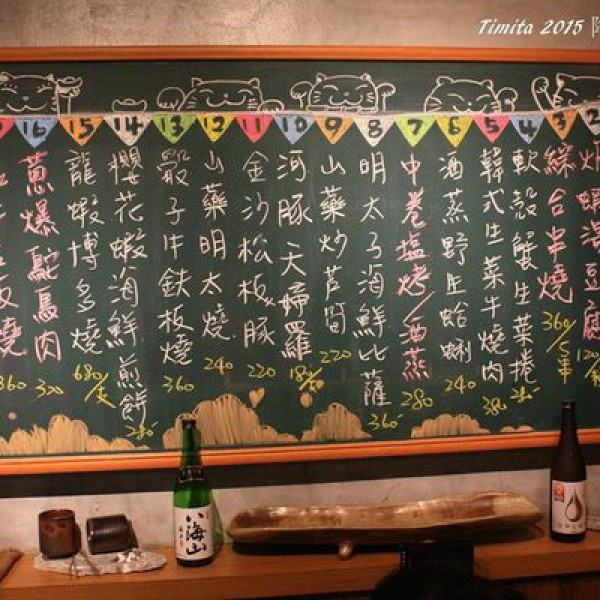 Timita 2015
2 焗蝦湯豆腐 120/
3 綜合串燒 360/5串
4 軟殼蟹生菜捲
5 韓式生菜牛燒肉 380
6 酒蒸野生蛤蜊 240
7 中卷塩烤/酒蒸 280
8 明太子海鮮比薩 360
9 山藥炒芦筍 220
10 河豚天婦羅 180/
11 金沙松板豚 220
12 山藥明太燒 240
13 骰子牛鉄板燒 360
14 櫻花蝦海鮮煎餅 280
15 龍蝦博多燒 680/
16 蔥爆鴕鳥肉 320
板燒 360
八海山